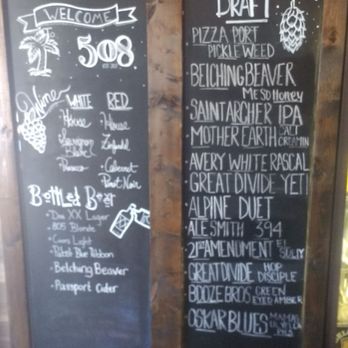 WELCOME
508
Wine
WHITE RED
House House
Sauvignon Blanc Zinfandel
Prosecco Cabernet
Pinot Noir
Bottled Beer
• Dos XX Lager
• 805 Blonde
• Coors Light
• Pabst Blue Ribbon
• Belching Beaver
• Passport Cider
DRAFT
PIZZA PORT
PICKLEWEED
BELCHING BEAVER
ME SO Honey
SAINT ARCHER IPA
MOTHER EARTH CALI CREAMIN
AVERY WHITE RASCAL
GREAT DIVIDE YETI
ALPINE DUET
ALE SMITH 394
21ST AMENUMENT
GREAT DIVIDE HOP DISCIPLE
BOOZE BROS GREEN EYED AMBER
OSKAR BLUES MAMAS